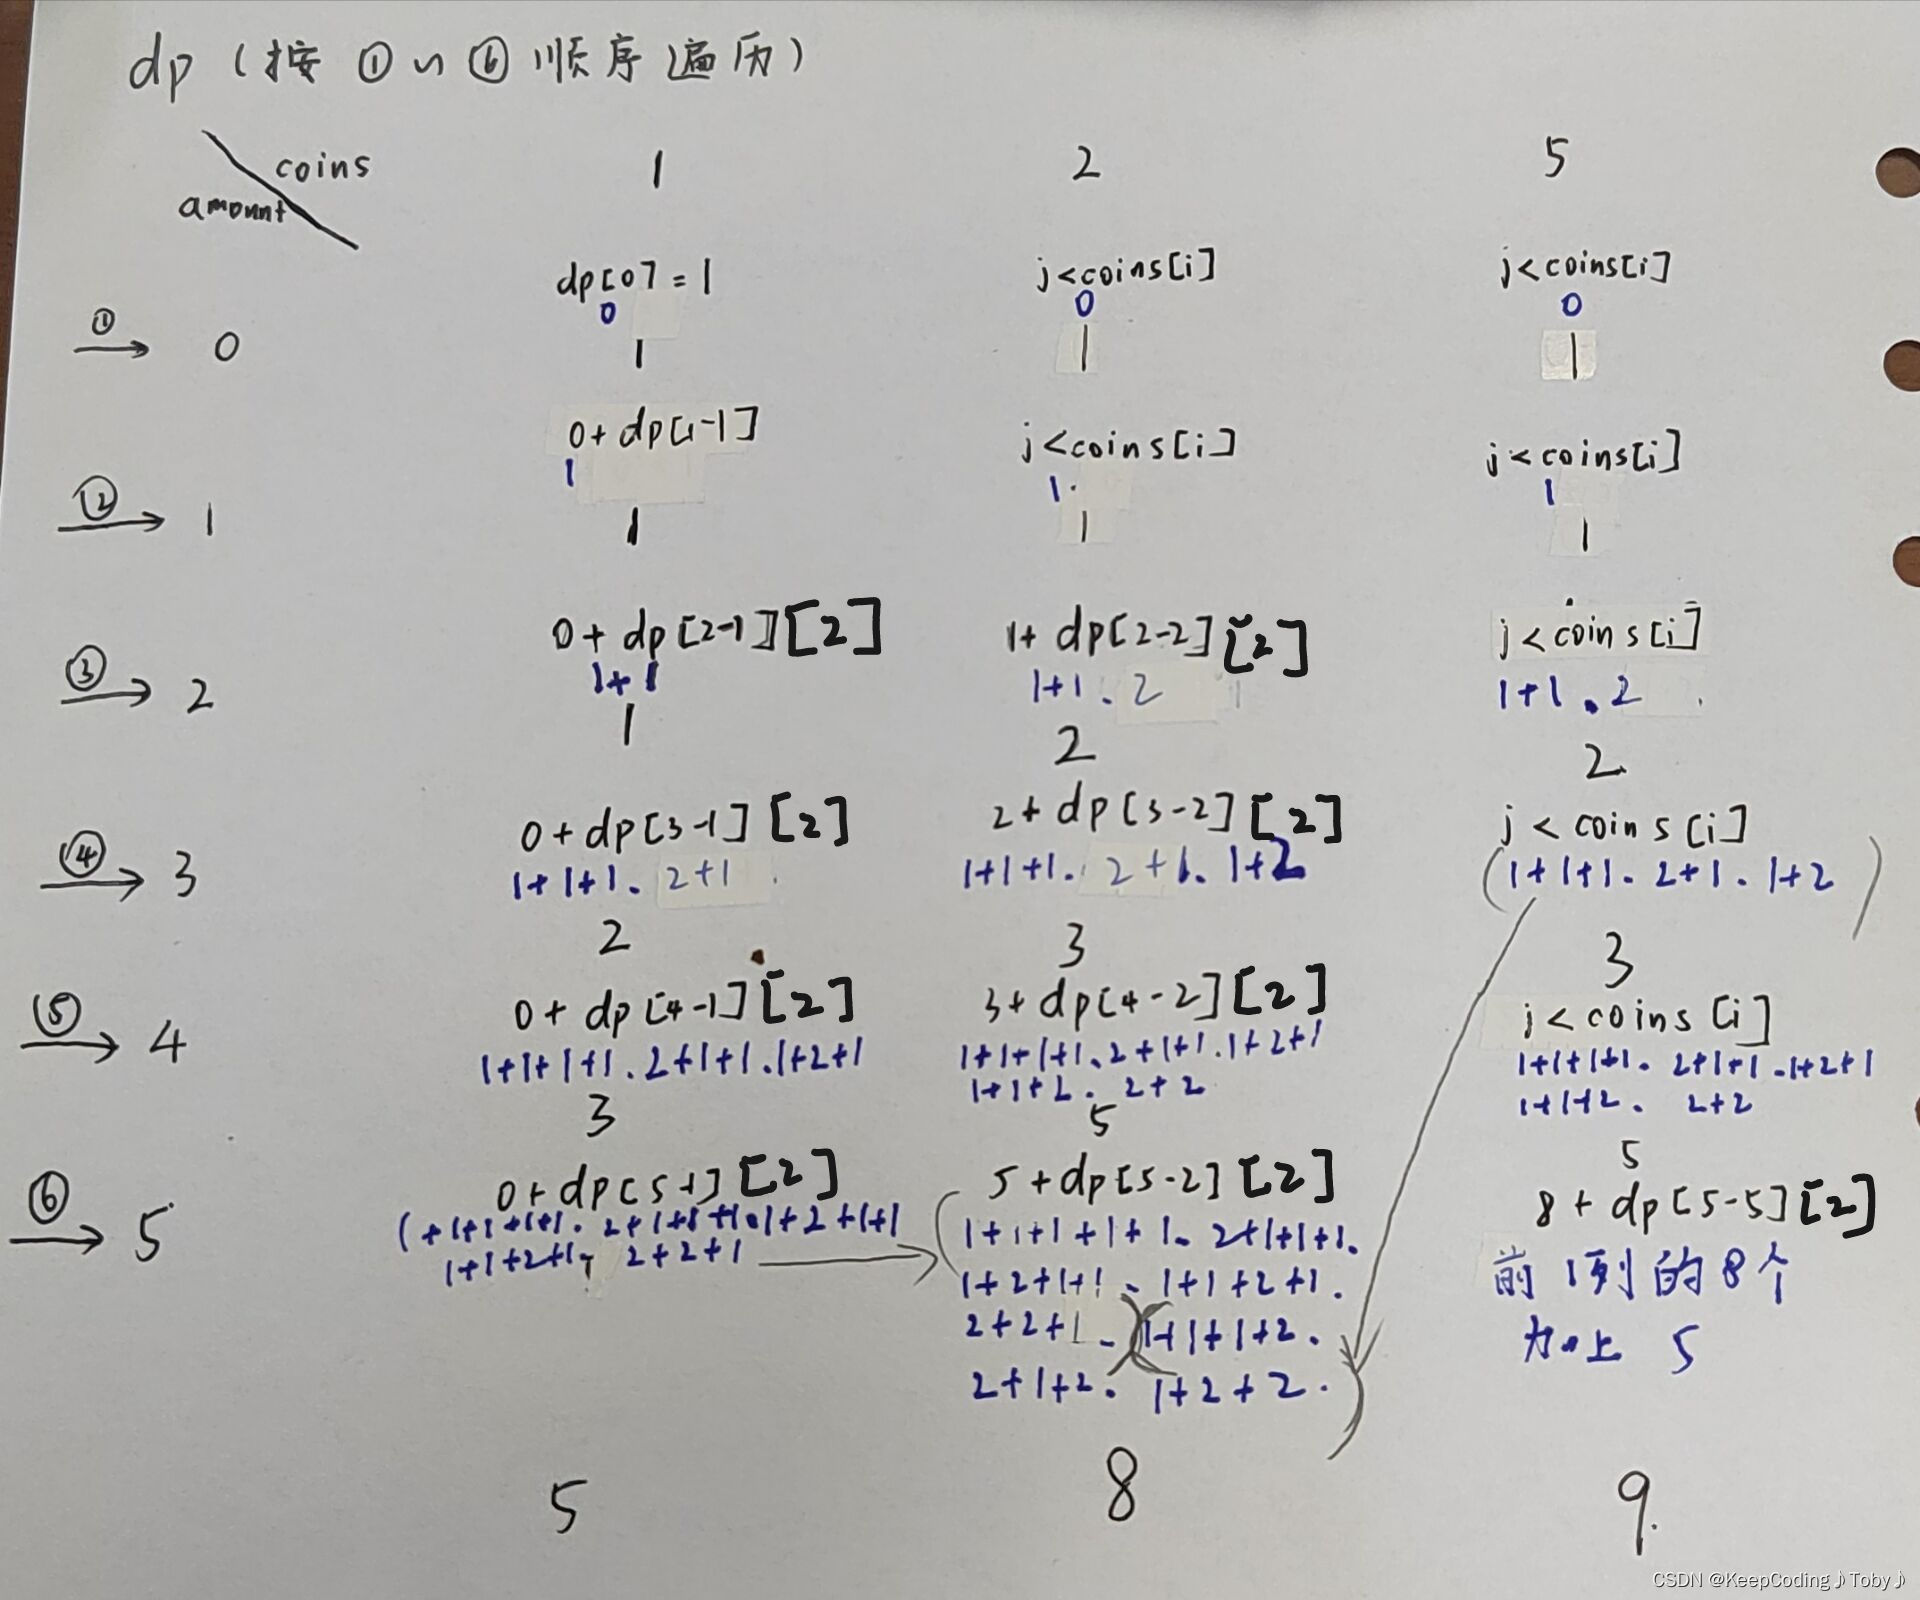 dp (按 ① ~ ⑥ 顺序遍历)
coins
amount
1 2 5
dp[0] = 1 j<coins[i] j<coins[i]
0 0 0
① 0 1 1 1
0+dp[1-1] j<coins[i] j<coins[i]
1 1. 1
② 1 1 1 1
0+dp[2-1][2] 1+dp[2-2][2] j<coins[i]
1+1 1+1. 2 1+1. 2
③ 2 1 2 2
0+dp[3-1][2] 2+dp[3-2][2] j<coins[i]
④ 3 1+1+1. 2+1 1+1+1. 2+1. 1+2 (1+1+1. 2+1. 1+2)
2 3 3
0+dp[4-1][2] 3+dp[4-2][2] j<coins[i]
⑤ 4 1+1+1+1. 2+1+1. 1+2+1 1+1+1+1. 2+1+1. 1+2+1 1+1+1+1. 2+1+1. 1+2+1
1+1+2. 2+2 1+1+2. 2+2
3 5 5
0+dp[5-1][2] 5+dp[5-2][2] 8+dp[5-5][2]
⑥ 5 (1+1+1+1+1. 2+1+1+1. 1+2+1+1 1+1+1+1+1. 2+1+1+1. 前1列的8个
1+1+2+1. 2+2+1 1+2+1+1. 1+1+2+1. 加上 5
2+2+1.)(1+1+1+2.
2+1+2. 1+2+2.)
5 8 9.
CSDN @KeepCoding♪Toby♪